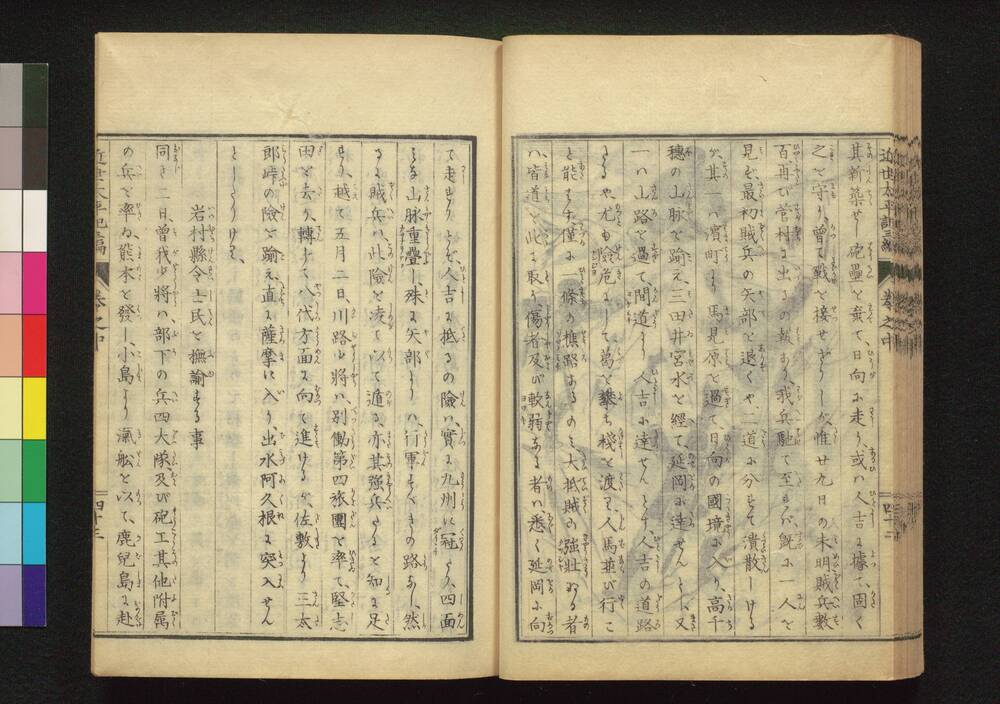 其新築せし砲壘を棄て、日向に走り、或ハ人吉に據て、固く
之を守り、曾て戰を接せざりしが、惟廿九日の未明賊兵數
百、再び菅村に出るの報あり、我兵馳て至れバ、既に一人を
見ず、最初賊兵の矢部を退くや、二道に分れて潰散しける
が、其一ハ濱町より馬見原を過て、日向の國境に入り、高千
穗の山脉を踰え、三田井宮水を經て延岡に達せんとし、又
一ハ山路を過て間道より人吉に達せんとす、人吉の道路
たるや、尤も險危にして葛を攀ぢ棧を渡り、人馬並び行こ
と能ハず、僅に一條の樵路あるのミ、大抵賊の強壯なる者
ハ、皆道を此に取り、傷者及び軟弱なる者ハ悉く延岡に向
て走れりとぞ、人吉に抵るの險ハ、實に九州に冠たり、四面
ミな山脉重疊し、殊に矢部よりハ、行軍すべきの路なし、然
るに賊兵ハ此險を凌て以て遁る、亦其強兵たるを知に足
れり、越て五月二日、川路少將ハ、別働第四旅團を率て、堅志
田を去り、轉じて八代方面に向て進けるが、佐敷より三太
郎峠の險を踰え、直に薩摩に入り、出水阿久根に突入せん
としたりけり、
岩村縣令士民を撫諭する事
同き二日、曾我少將ハ、部下の兵四大隊及び砲工其他附屬
の兵を率ゐ、熊本を發し、小島より滊舩を以て、鹿兒島に赴
近世太平記二編
卷之中
四十三